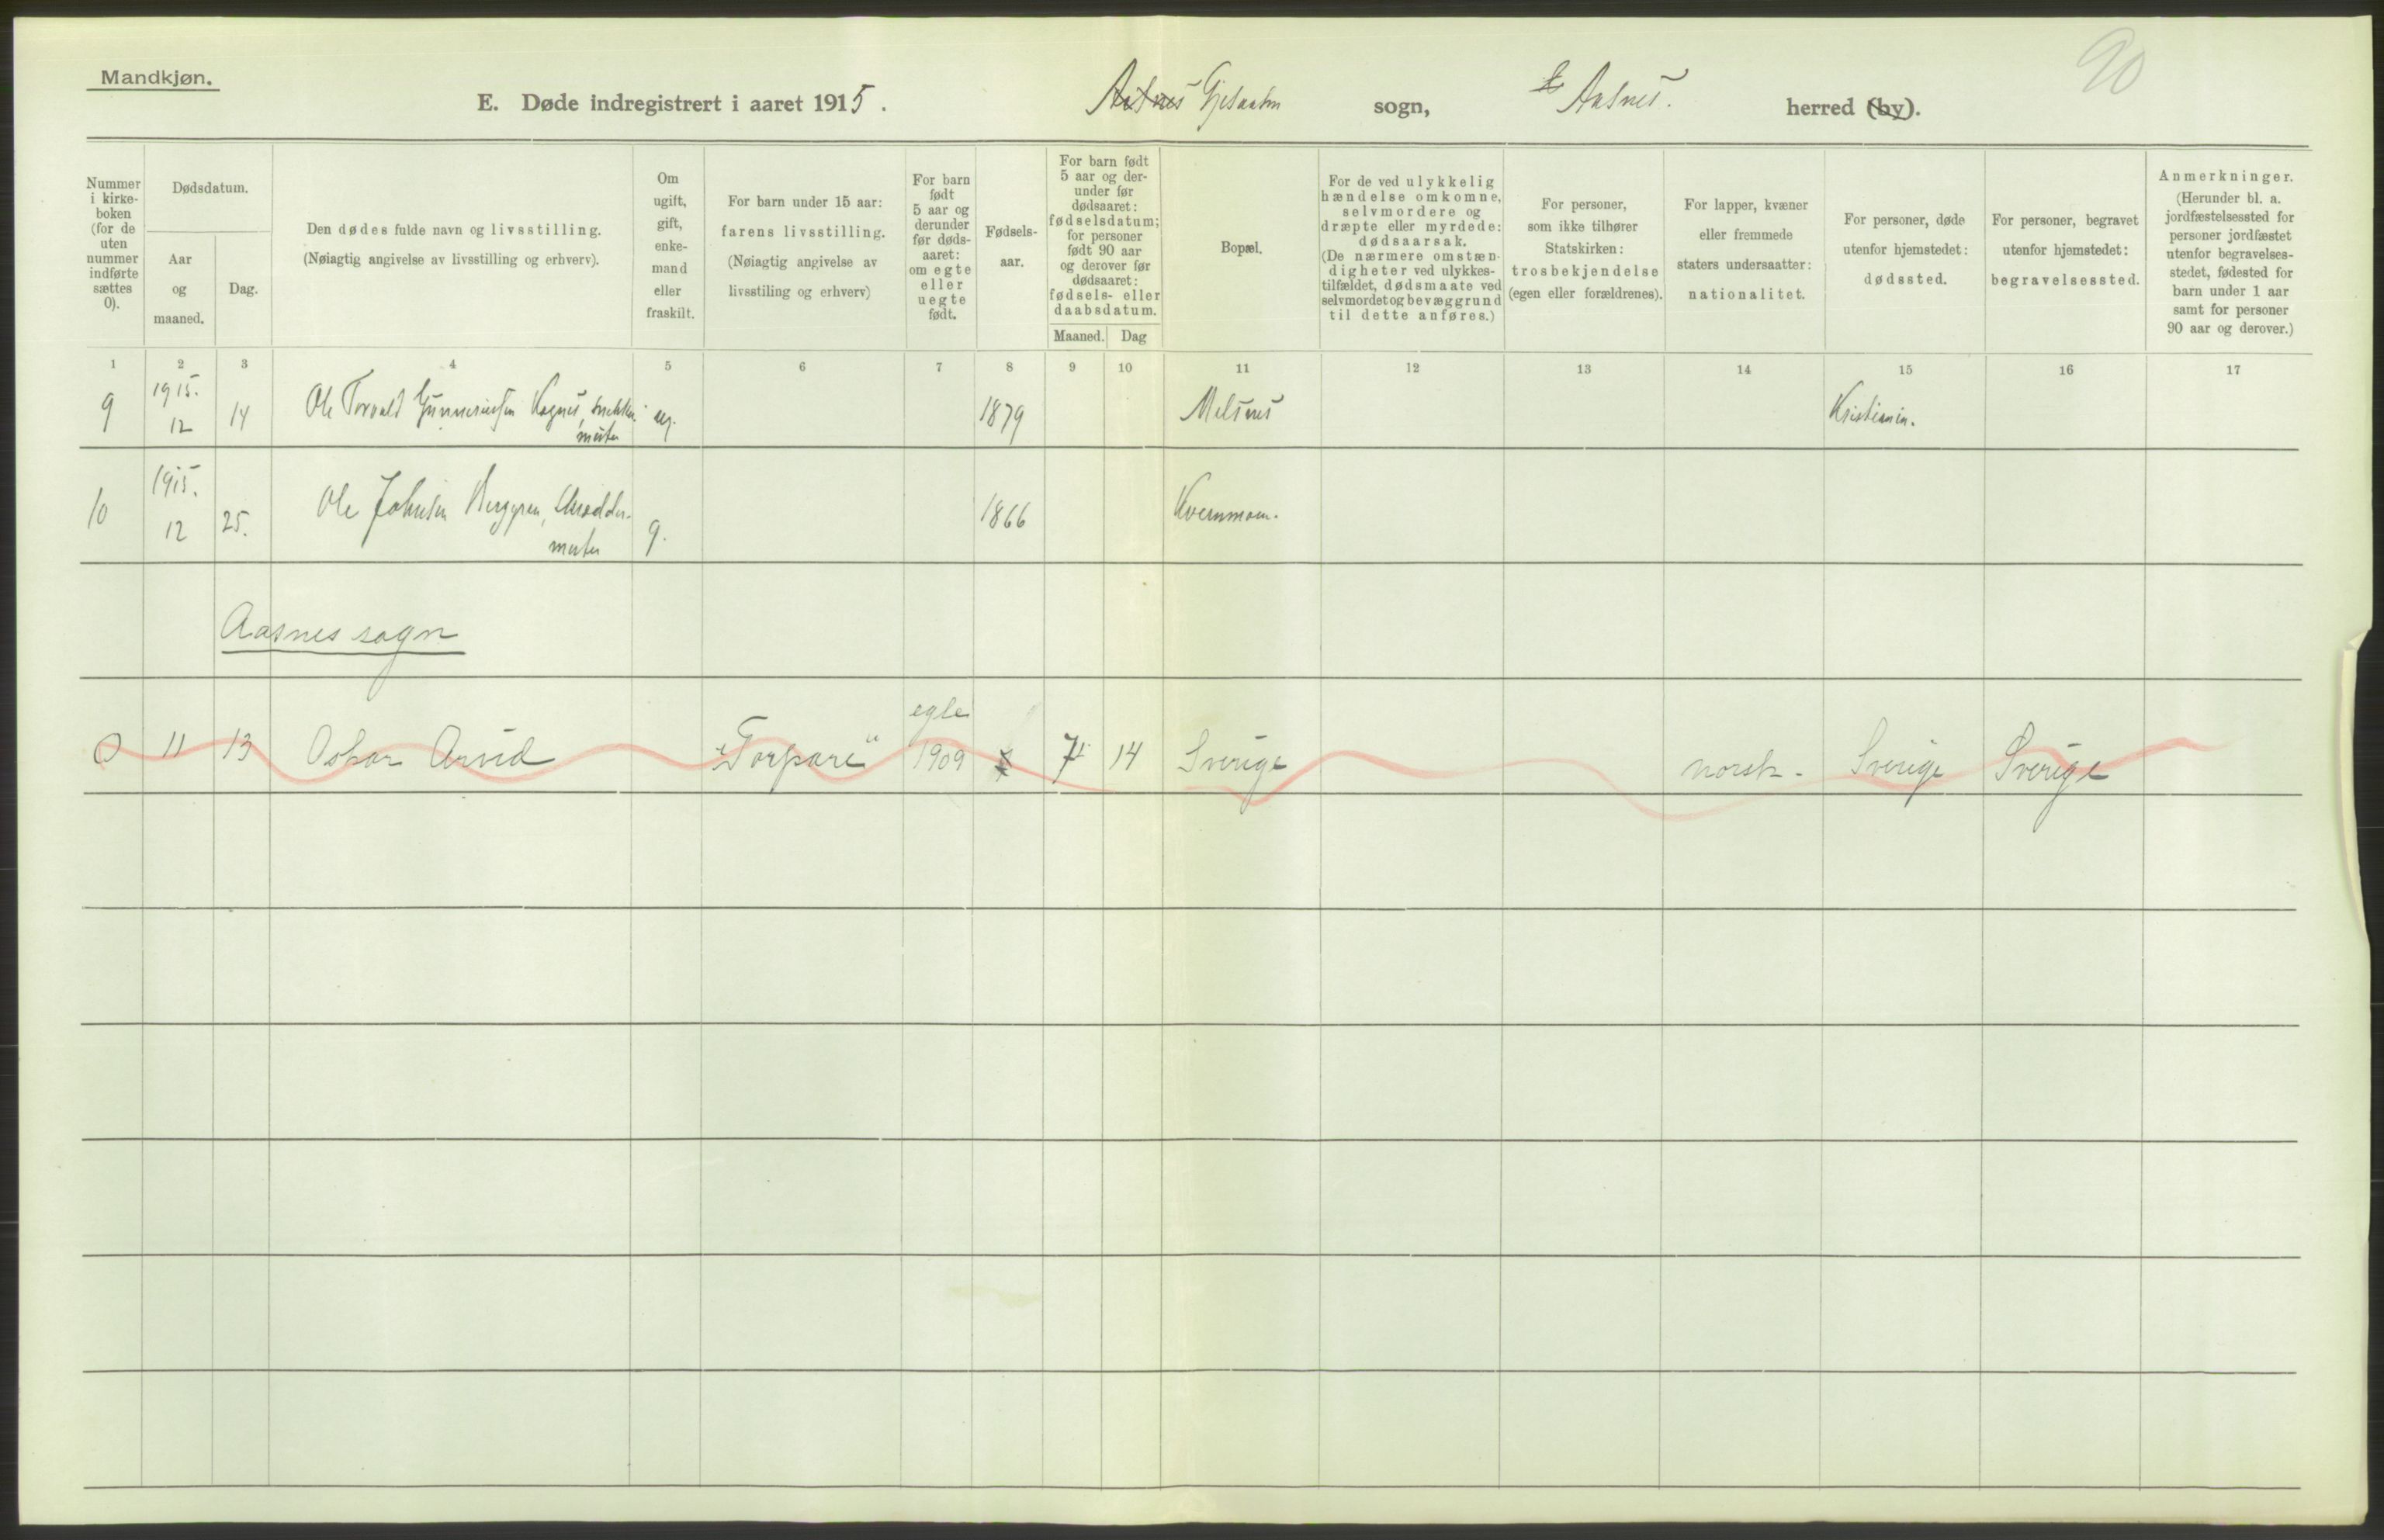 Mandkjøn.
E. Døde indregistrert i aaret 1915. Aasnes Gjesaasen sogn, Aasnes. herred (by).
90
Nummer i kirke-boken (for de uten nummer indførte sættes 0).
Dødsdatum.
Aar og maaned.
Dag.
Den dødes fulde navn og livsstilling.
(Nøiagtig angivelse av livsstilling og erhverv).
Om ugift, gift, enke-mand eller fraskilt.
For barn under 15 aar: farens livsstilling.
(Nøiagtig angivelse av livsstiling og erhverv)
For barn født 5 aar og derunder før døds-aaret: om egte eller uegte født.
Fødsels-aar.
For barn født 5 aar og der-under før dødsaaret: fødselsdatum; for personer født 90 aar og derover før dødsaaret: fødsels- eller daabsdatum.
Maaned. Dag
Bopæl.
For de ved ulykkelig hændelse omkomne, selvmordere og dræpte eller myrdede: dødsaarsak.
(De nærmere omstæn-digheter ved ulykkes-tilfældet, dødsmaate ved selvmordet og bevæggrund til dette anføres.)
For personer, som ikke tilhører Statskirken: trosbekjendelse (egen eller forældrenes).
For lapper, kvæner eller fremmede staters undersaatter: nationalitet.
For personer, døde utenfor hjemstedet: dødssted.
For personer, begravet utenfor hjemstedet: begravelsessted.
Anmerkninger.
(Herunder bl. a. jordfæstelsessted for personer jordfæstet utenfor begravelses-stedet, fødested for barn under 1 aar samt for personer 90 aar og derover.)
1 2 3 4 5 6 7 8 9 10 11 12 13 14 15 16 17
9 1915. 12 14 Ole Torvald Gunneriusen Vognes, snekker
mester ug. 1879 Melsnes Kristiania.
10 1915. 12 25. Ole Johnsen Berggren, skrædder-
mester g. 1866 Kvernmoen.
Aasnes sogn
egte
0 11 13 Oskar Arvid "Torpare" 1909 7 14 Sverige norsk - Sverige Sverige